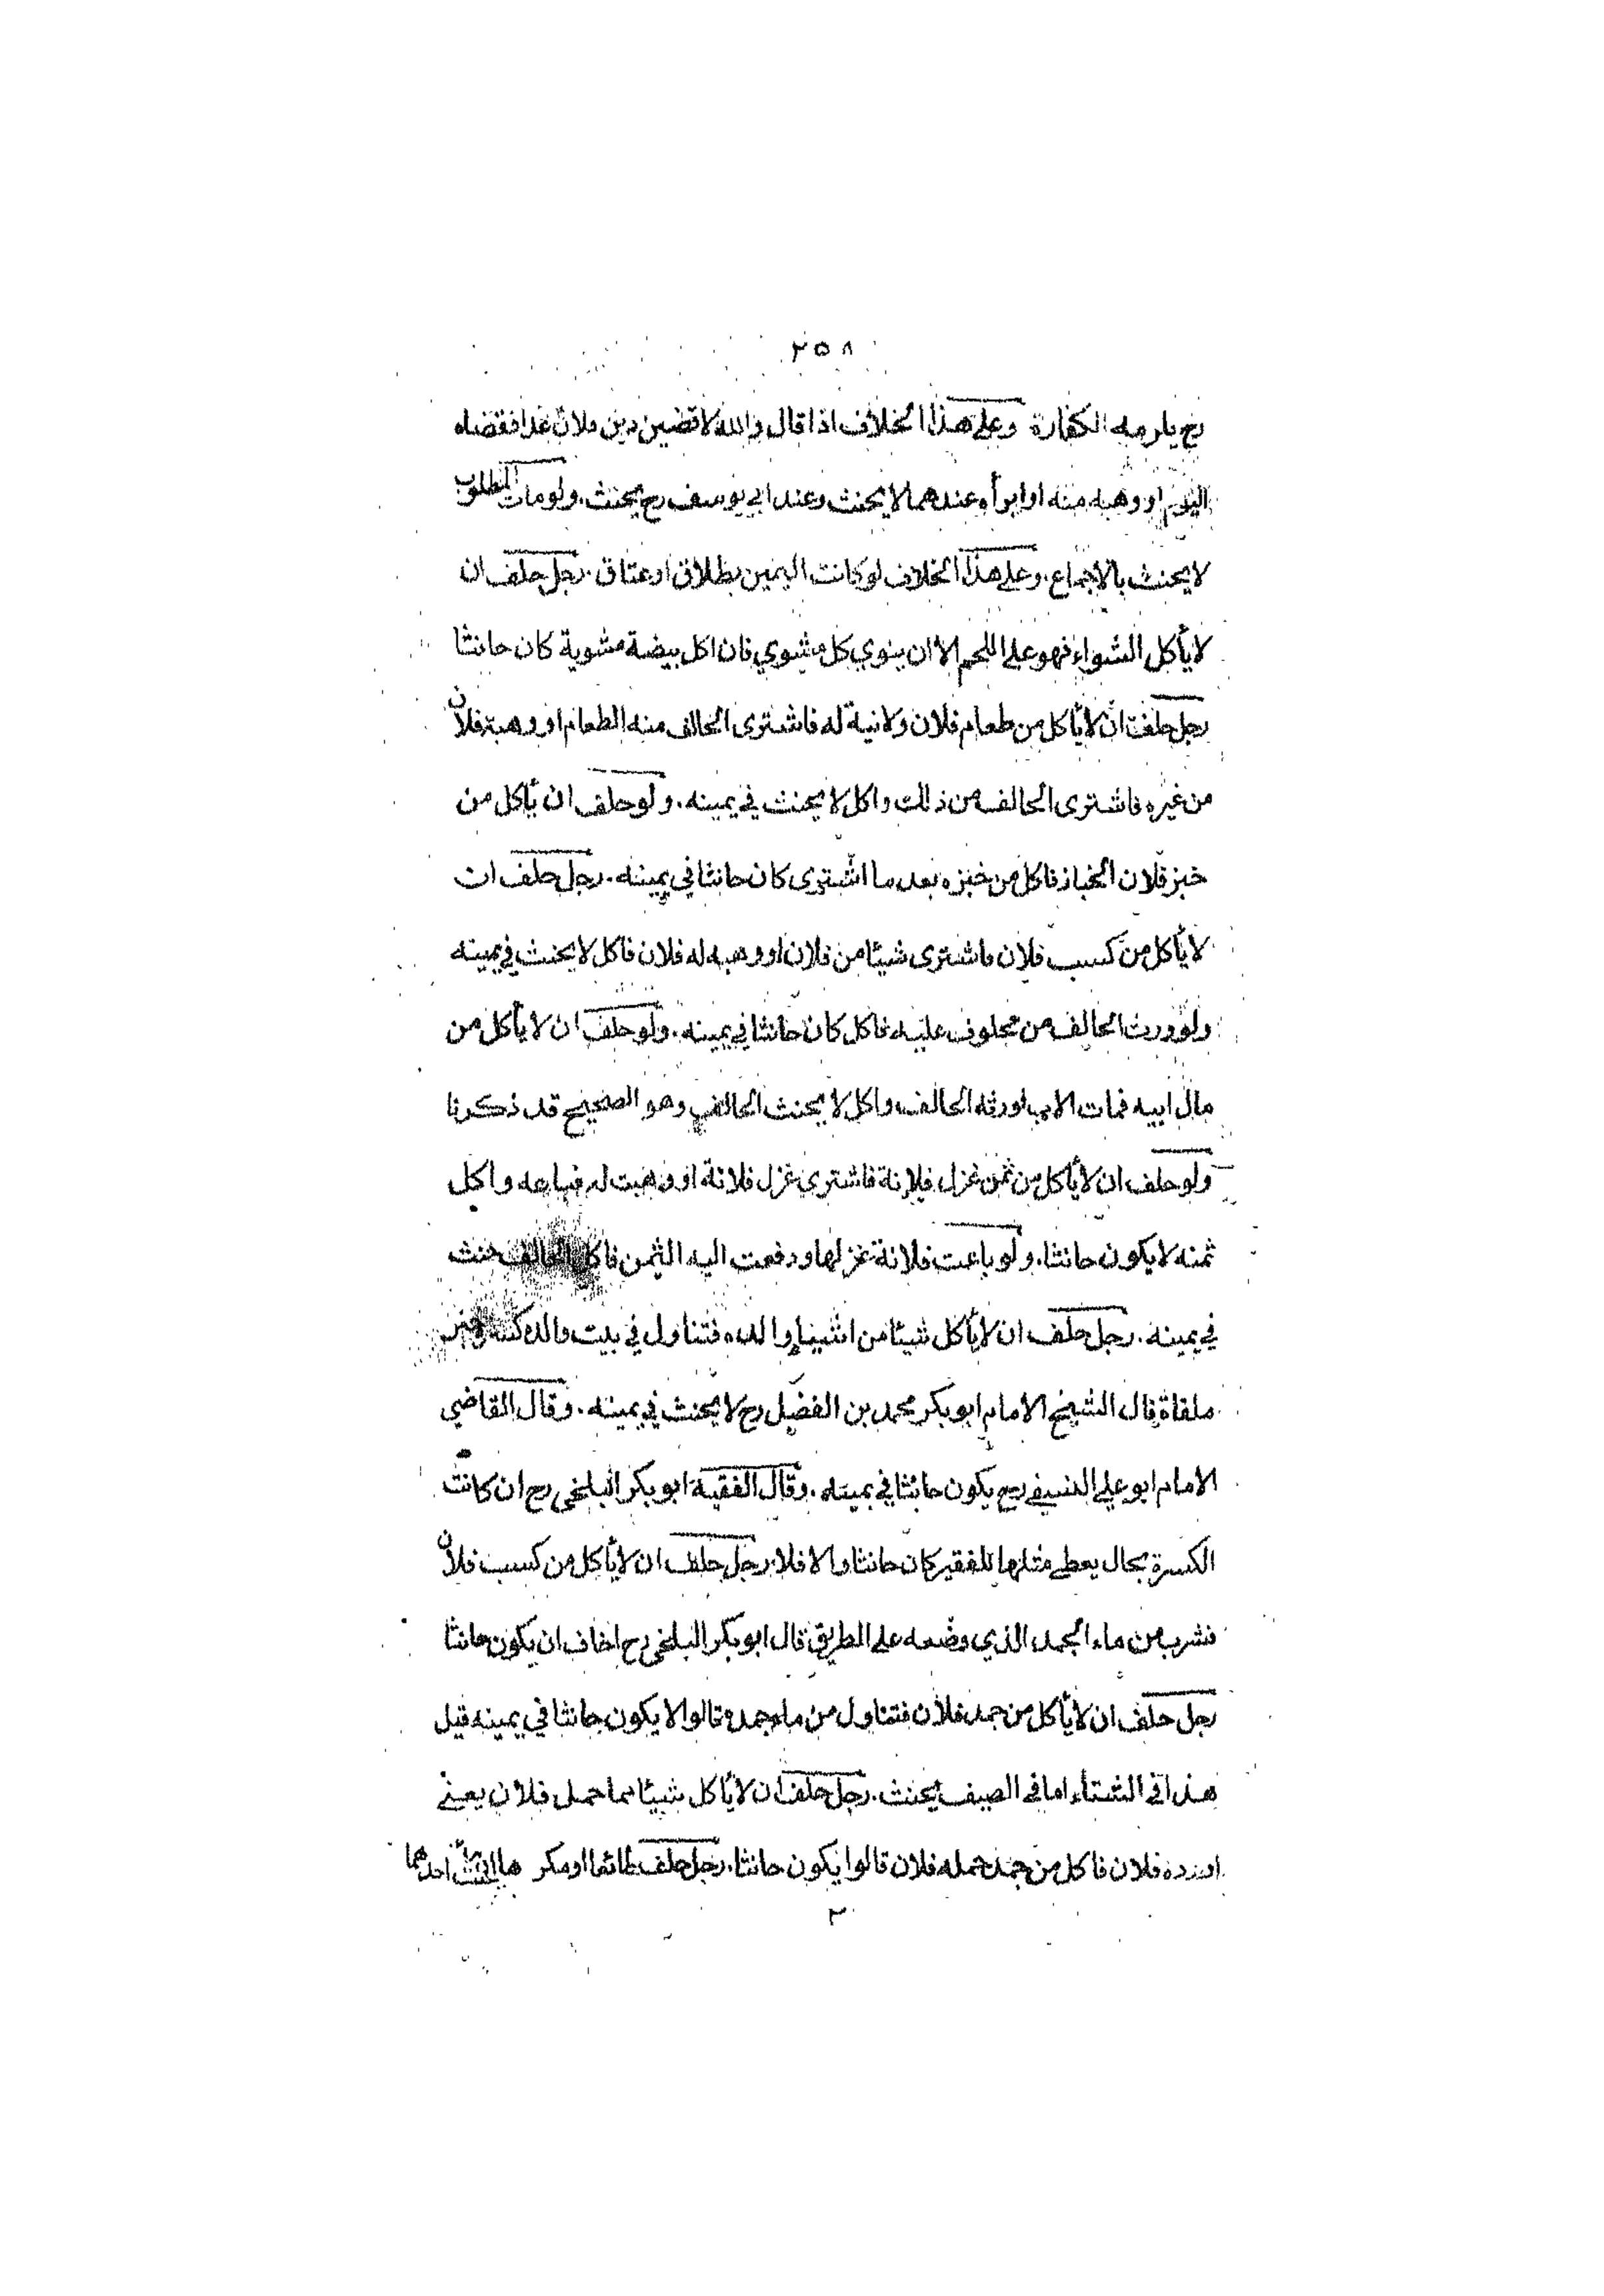 ٢٥٨
رح يلزمه الكفارة وعلى هذا الخلاف اذا قال والله لاقضين دين فلان غدا فقضاه
اليوم او وهبه منه او ابرأه عندهما لا يحنث وعند ابي يوسف رح يحنث. ولو مات المطلوب
لا يحنث بالاجماع. وعلى هذا الخلاف لو كانت اليمين بطلاق او عتاق. رجل حلف ان
لا يأكل الشواء فهو على اللحم الا ان ينوي كل مشوي فان اكل بيضة مشوية كان حانثا
رجل حلف ان لا يأكل من طعام فلان ولا نية له فاشترى الحالف منه الطعام او وهبه فلان
من غيره فاشترى الحالف من ذلك واكل لا يحنث في يمينه. ولو حلف ان يأكل من
خبز فلان الخباز فاكل من خبزه بعد ما اشترى كان حانثا في يمينه. رجل حلف ان
لا يأكل من كسب فلان فاشترى شيئا من فلان او وهبه له فلان فاكل لا يحنث في يمينه
ولو ورث الحالف من محلوف عليه فاكل كان حانثا في يمينه. ولو حلف ان لا يأكل من
مال ابيه فمات الاب فورثه الحالف واكل لا يحنث الحالف وهو الصحيح قد ذكرنا
ولو حلف ان لا يأكل من ثمن غزل فلانة فاشترى غزل فلانة او وهبت له فباعه واكل
ثمنه لا يكون حانثا. ولو باعت فلانة غزلها ودفعت اليه الثمن فاكل الحالف حنث
في يمينه. رجل حلف ان لا يأكل شيئا من اشياء والده فتناول في بيت والده كسرة خبز
ملقاة قال الشيخ الامام ابو بكر محمد بن الفضل رح لا يحنث في يمينه. وقال القاضي
الامام ابو علي النسفي رح يكون حانثا في يمينه. وقال الفقيه ابو بكر البلخي رح ان كانت
الكسرة بحال يعطى مثلها للفقير كان حانثا والا فلا رجل حلف ان لا يأكل من كسب فلان
فشرب من ماء الجمد الذي وضعه على الطريق قال ابو بكر البلخي رح اخاف ان يكون حانثا
رجل حلف ان لا يأكل من جمد فلان فتناول من ماء جمده قالوا لا يكون حانثا في يمينه قيل
هذا في الشتاء اما في الصيف يحنث. رجل حلف ان لا يأكل شيئا مما حمل فلان يعني
اورده فلان فاكل من جمد حمله فلان قالوا يكون حانثا. رجل حلف طائعا او مكرها احدهما